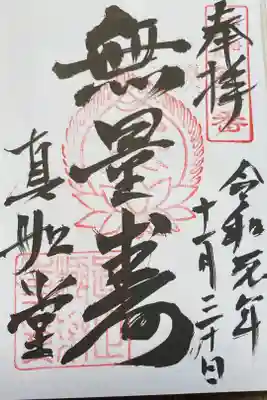 奉拝
令和元年
十一月三十日
無量寿
真如堂